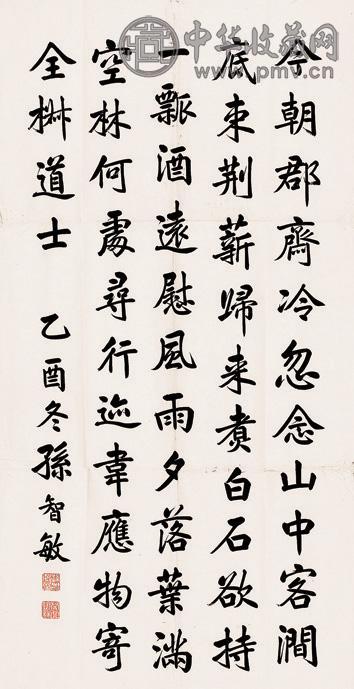 中华收藏网
www.pmv.cn
今朝郡齋冷忽念山中客澗
底束荆薪歸来煑白石欲持
一瓢酒遠慰風雨夕落葉滿
空林何處尋行迹韋應物寄
全椒道士 乙酉冬孫智敏